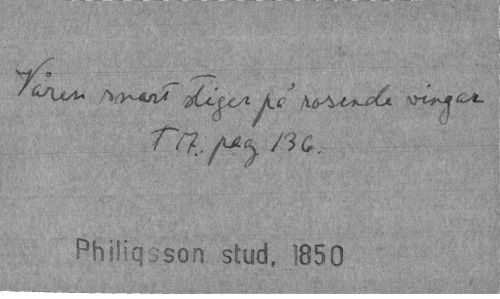 Våren snart stiger på rosende vingar
T 17. pag 136.
Philiqsson stud, 1850